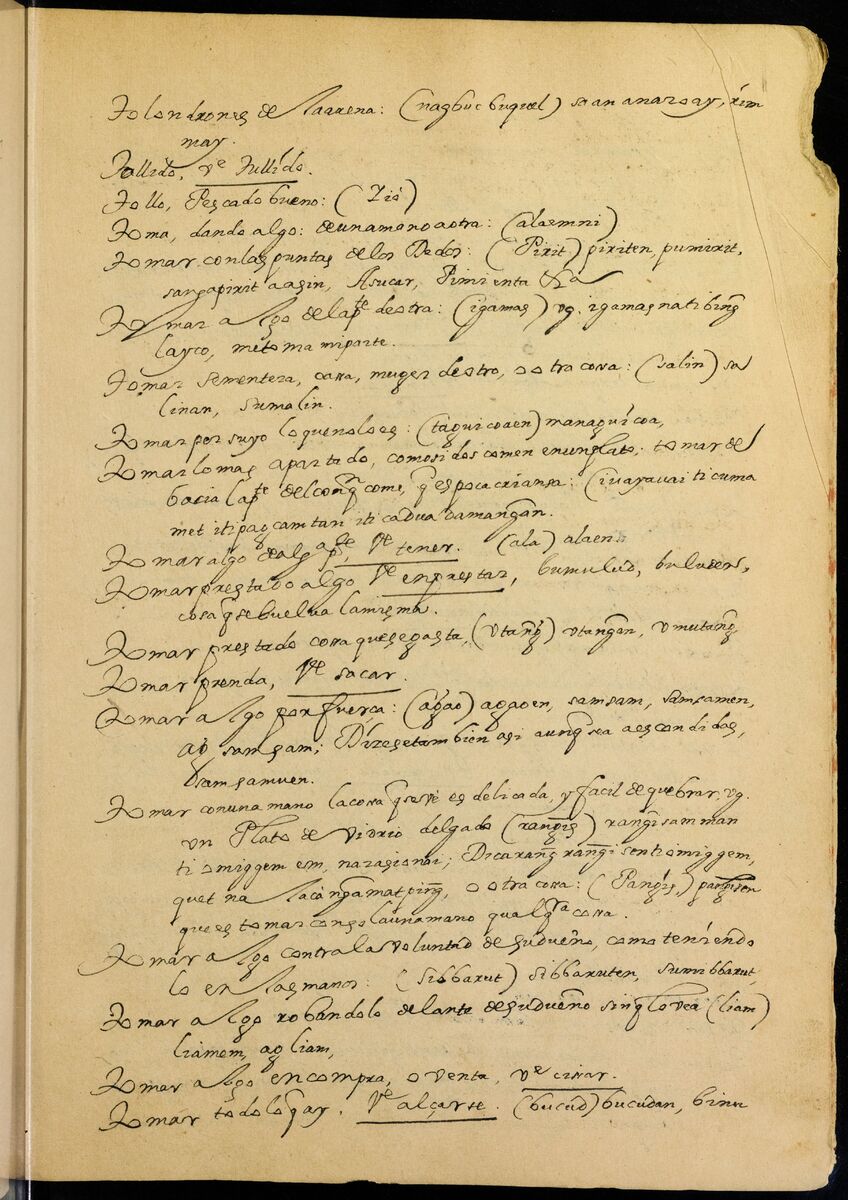 Tolondrones de la arena: (nagbucbuquel) sa an anaroay, rim
may.
Tollido, ve Tullido.
Tollo, Pescado bueno: (Zió)
Toma, dando algo: de una mano a otra: (alaemni)
Tomar con las puntas de los Dedos: (Pirit) piriten, pumirit,
sangapirit a asin, Asucar, Pimienta &a
Tomar algo de la pte de otra: (igamas) vg. igamas nati bing̃
layco, me toma mi parte.
Tomar sementera, cassa, muger de otro, o otra cossa: (salin) sa
linan, sumalin.
Tomar por suyo lo que no lo es: (taguicoaen) managuicoa,
Tomar lo mas apartado, como si dos comen en un plato: tomar de
hacia la pte del con q̃ come, q̃ es poca criansa: (ivaravai ti cuma
met iti pagcamtan iti cadua a mang̃an.
Tomar algo de alg a pte, Ve tener. (ala) alaen.
Tomar prestado algo Ve enprestar, bumulud, buluden,
cosa q̃ se buelua la misma.
Tomar prestado cossa que se gasta, (vtang̃) vtangan, vmutang̃
Tomar prenda, Ve sacar.
Tomar algo por fuerça: (agao) agaoen, samsam, samsamen,
ag samsam; Dizese tambien asi aunq̃ sea a escondidas,
samsamuen.
Tomar con una mano la cossa q̃ se ve es delicada, y facil de quebrar, vg.
vn Plato de Vidrio delgado (rang̃is) rang̃isam man
ti omiggem em, narasi onai; Dicarang̃rang̃isen ti omiggem,
quet na lacang̃amatping̃, o otra cossa: (Pang̃is,) pang̃isen
que es tomar con sola una mano qualqra cossa.
Tomar algo contra la voluntad de su dueño, como teniendo
lo en las manos: (sibbarut) sibbaruten, sumibbarut,
Tomar algo robandolo delante de su dueño sin q̃ lo vea (liam)
liamem, ag liam,
Tomar algo en compra, o venta, ve cissar.
Tomar todo lo q̃ ay. Ve alçarse. (bucud) bucudan, binu